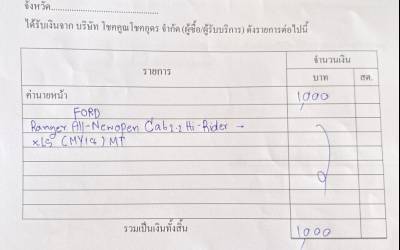 จังหวัด
ได้รับเงินจาก บริษัท โชคคูณโชคอุดร จำกัด (ผู้ซื้อ/ผู้รับบริการ) ดังรายการต่อไปนี้
รายการ จำนวนเงิน
บาท สต.
ค่านายหน้า 1,000
FORD
Ranger All-New open Cab 2.2 Hi-Rider -
XLS (MY18) MT
รวมเป็นเงินทั้งสิ้น 1,000